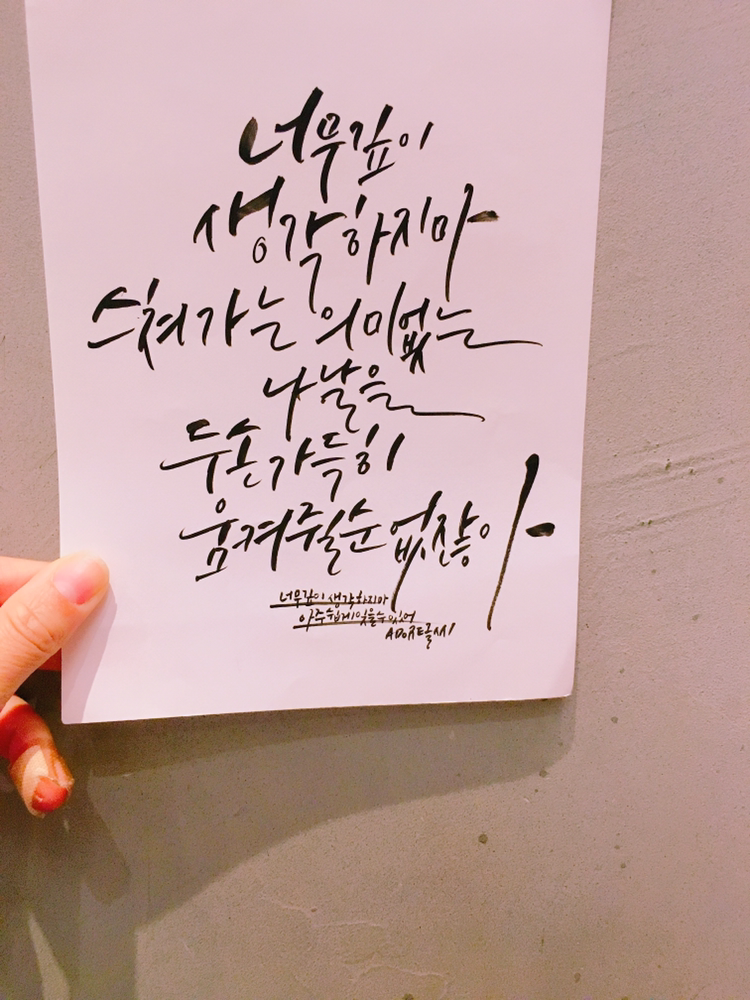 너무깊이
생각하지마
스쳐가는 의미없는
나날을
두손가득히
움켜쥘순 없잖아
너무깊이 생각하지마
아주쉽게잊을수있어
ADORE글씨